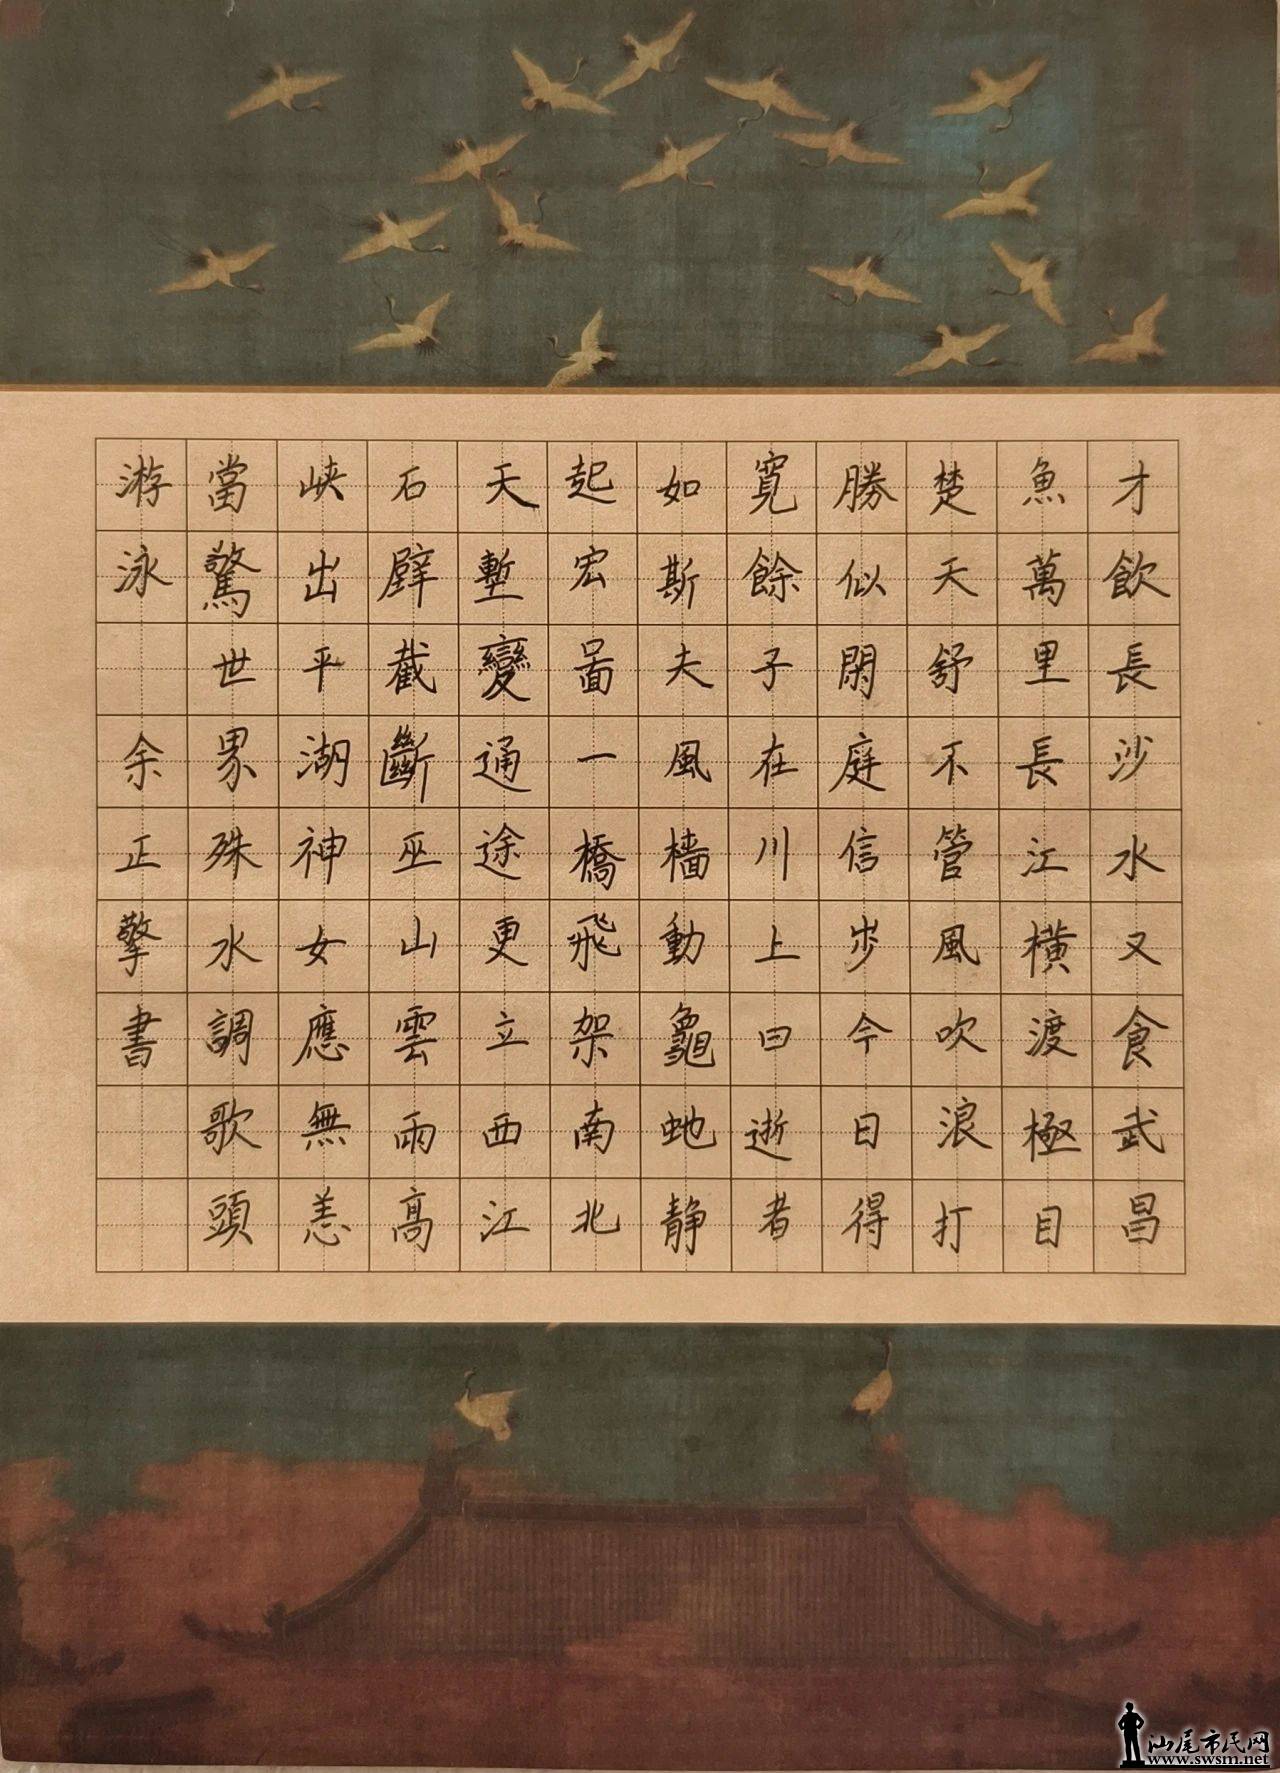 才飲長沙水又食武昌
魚萬里長江橫渡極目
楚天舒不管風吹浪打
勝似閑庭信步今日得
寬餘子在川上曰逝者
如斯夫風檣動龜虵静
起宏啚一橋飛架南北
天塹變通途更立西江
石壁截斷巫山雲雨高
峽出平湖神女應無恙
當驚世界殊水調歌頭
游泳 余正擎書
汕尾市民网
www.swsm.net